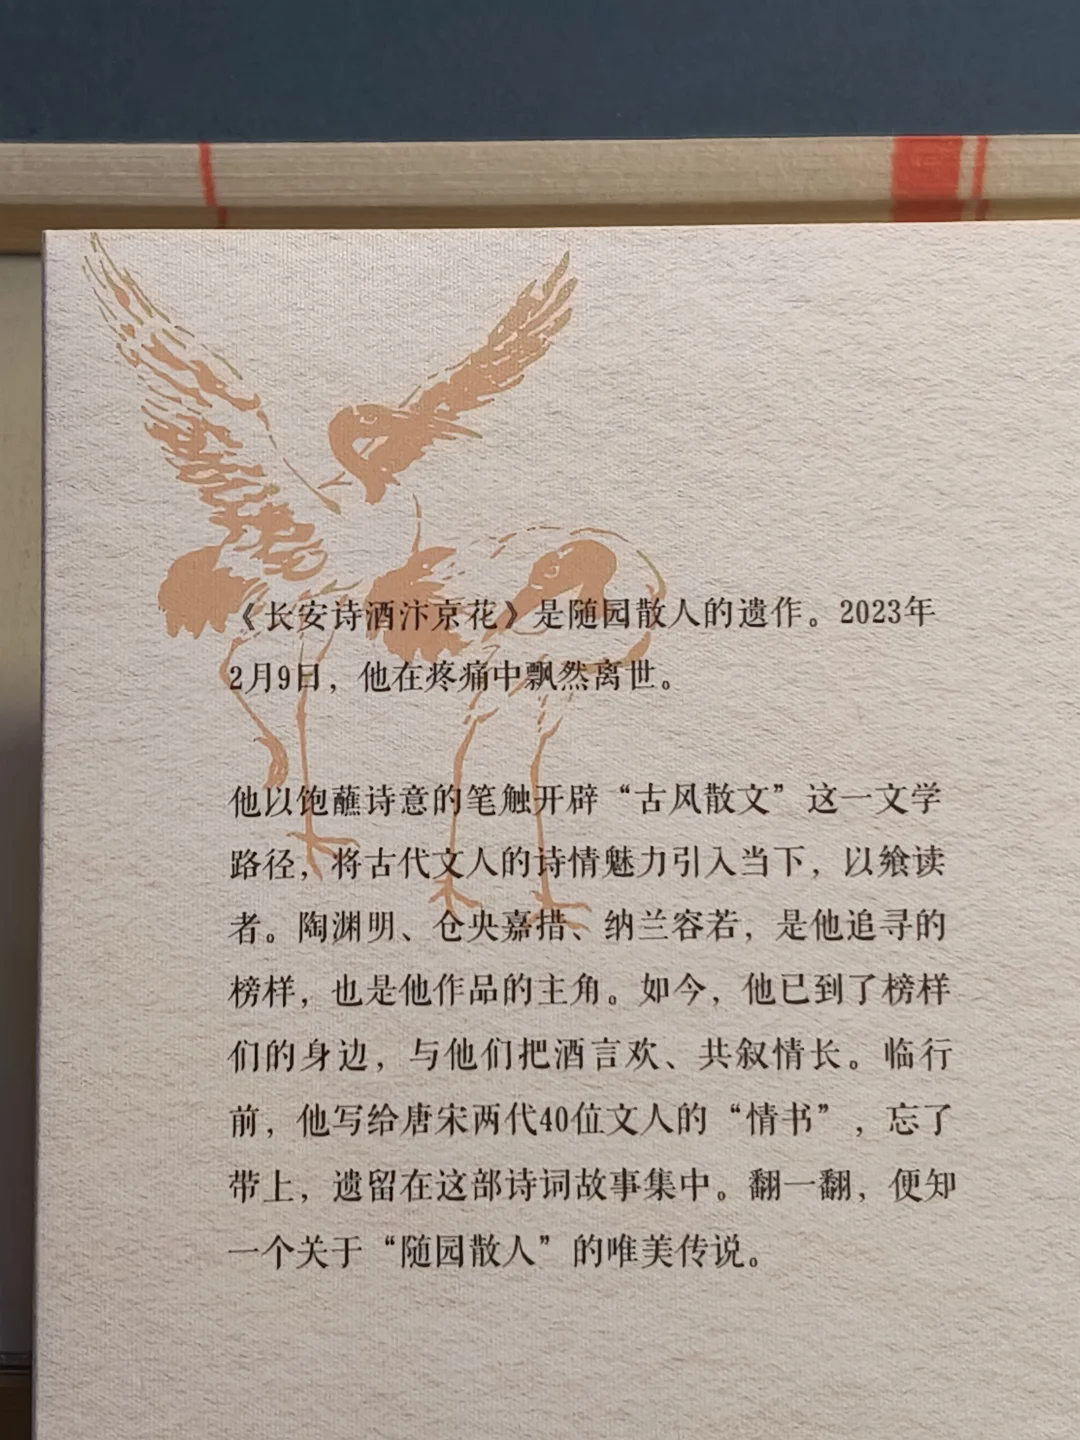 《长安诗酒汴京花》是随园散人的遗作。2023年
2月9日，他在疼痛中飘然离世。
他以饱蘸诗意的笔触开辟“古风散文”这一文学
路径，将古代文人的诗情魅力引入当下，以飨读
者。陶渊明、仓央嘉措、纳兰容若，是他追寻的
榜样，也是他作品的主角。如今，他已到了榜样
们的身边，与他们把酒言欢、共叙情长。临行
前，他写给唐宋两代40位文人的“情书”，忘了
带上，遗留在这部诗词故事集中。翻一翻，便知
一个关于“随园散人”的唯美传说。